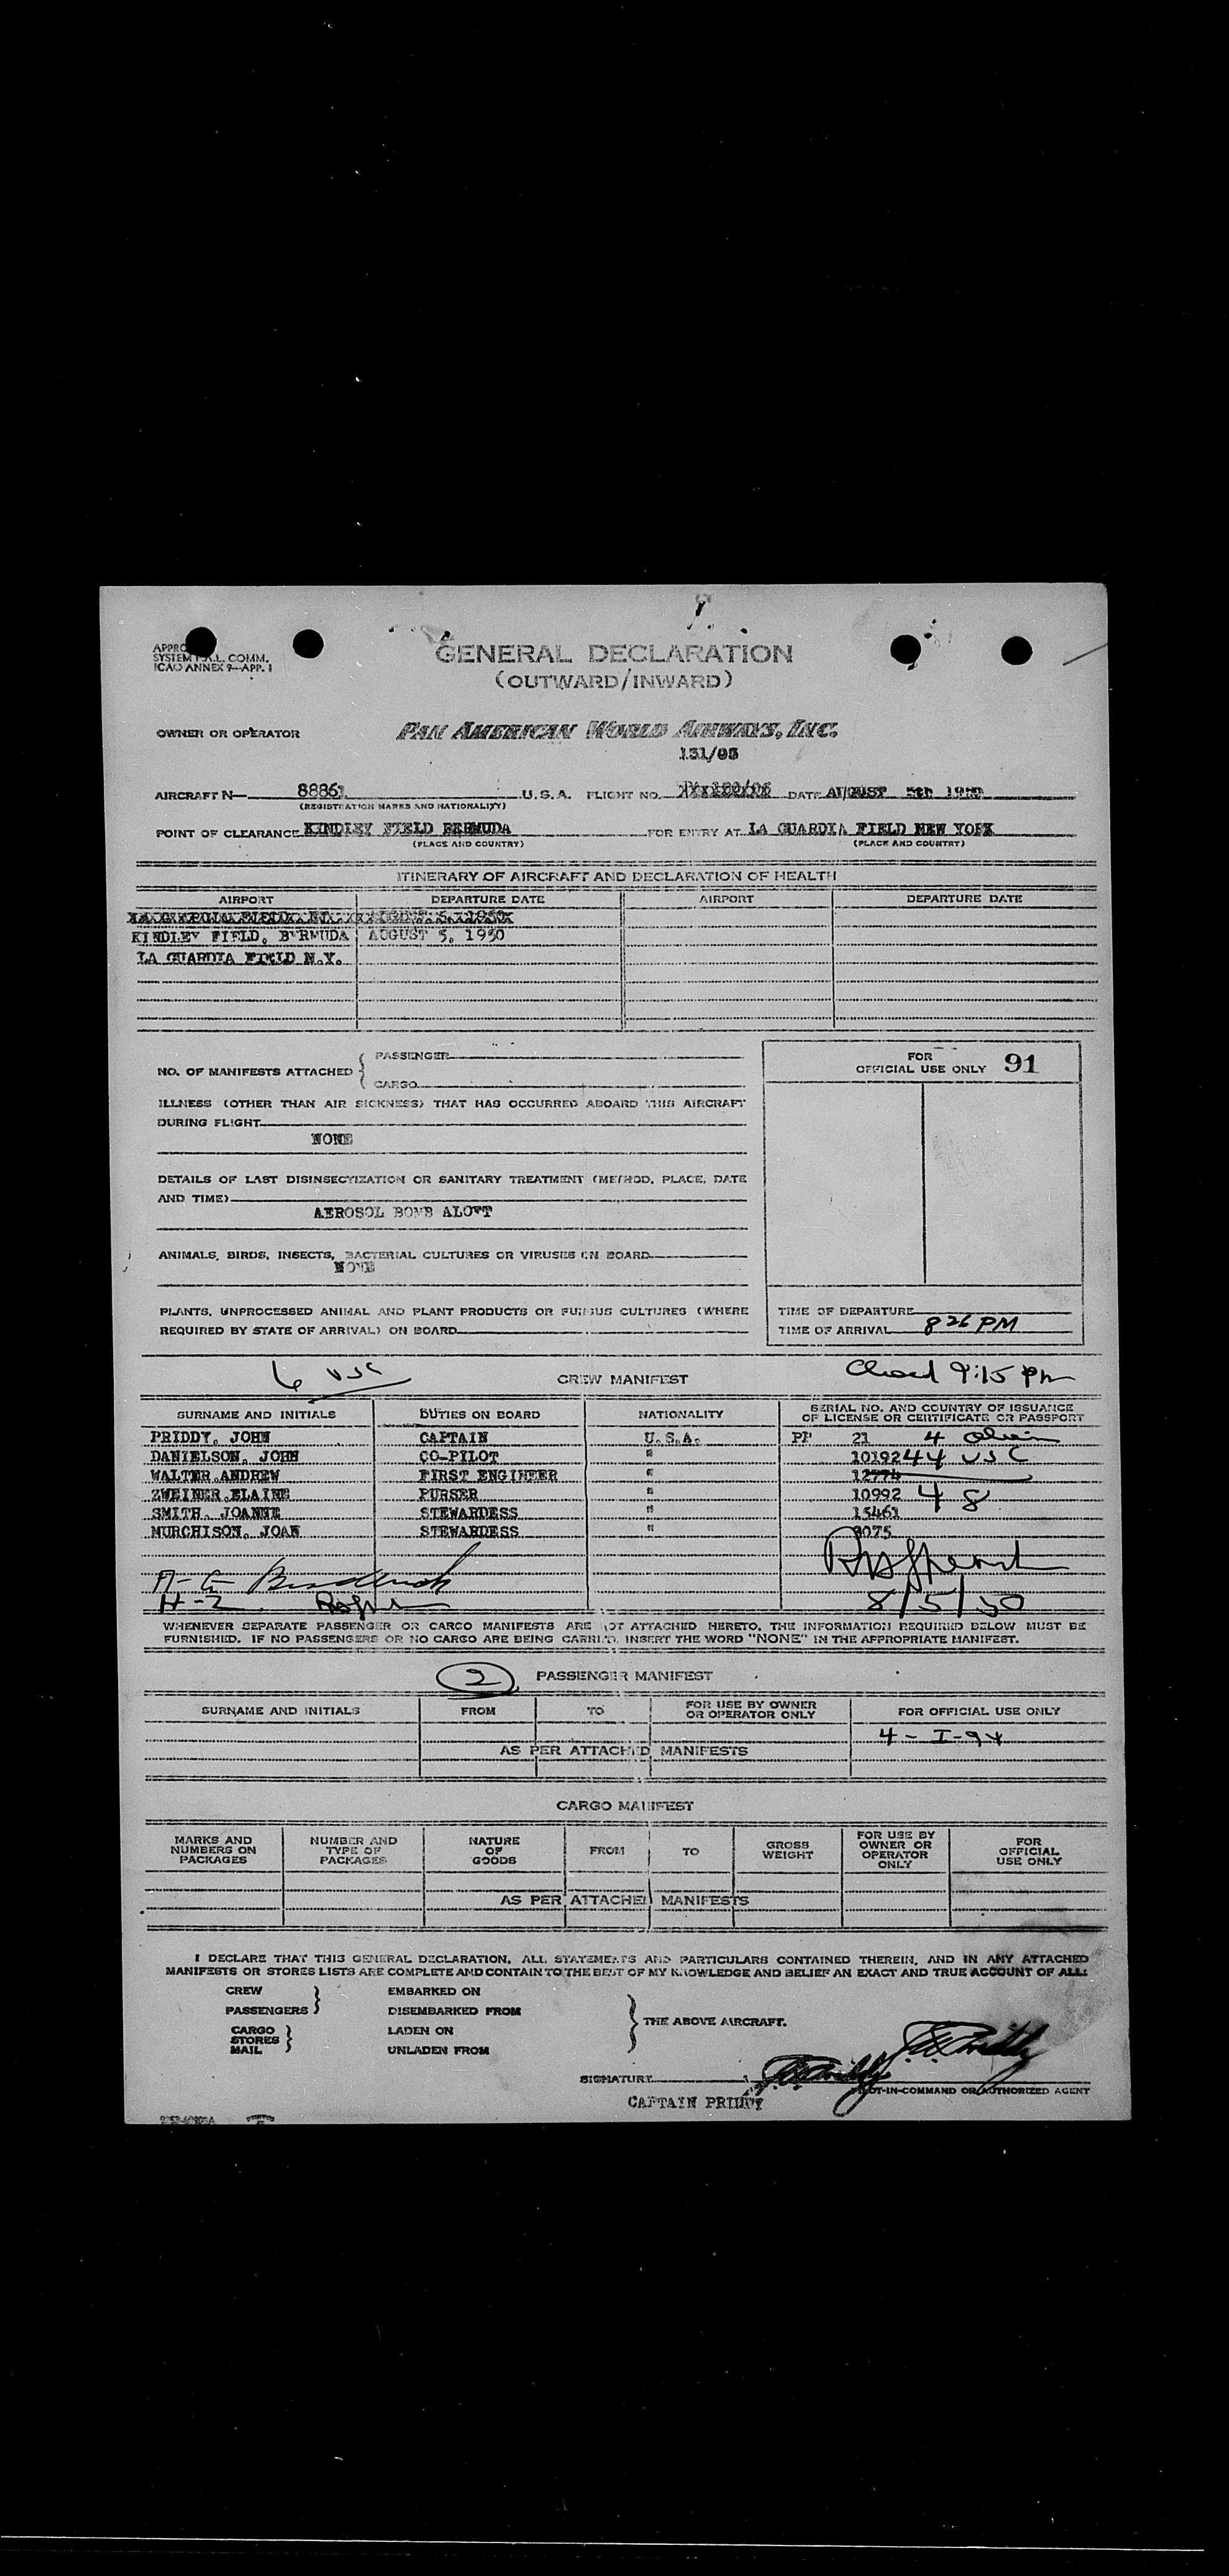 GENERAL DECLARATION
(OUTWARD/INWARD)
SYSTEM COMM.
ICAO ANNEX 9—APP. 1
OWNER OR OPERATOR PAN AMERICAN WORLD AIRWAYS, INC.
131/05
AIRCRAFT N— 88861 U.S.A. FLIGHT NO. DATE AUGUST 5th 1950
(REGISTRATION MARKS AND NATIONALITY)
POINT OF CLEARANCE KINDLEY FIELD BERMUDA FOR ENTRY AT LA GUARDIA FIELD NEW YORK
(PLACE AND COUNTRY) (PLACE AND COUNTRY)
ITINERARY OF AIRCRAFT AND DECLARATION OF HEALTH
AIRPORT DEPARTURE DATE AIRPORT DEPARTURE DATE
KINDLEY FIELD, BERMUDA AUGUST 5, 1950
LA GUARDIA FIELD N.Y.
NO. OF MANIFESTS ATTACHED { PASSENGER
CARGO
FOR
OFFICIAL USE ONLY 91
ILLNESS (OTHER THAN AIR SICKNESS) THAT HAS OCCURRED ABOARD THIS AIRCRAFT
DURING FLIGHT
NONE
DETAILS OF LAST DISINSECTIZATION OR SANITARY TREATMENT (METHOD, PLACE, DATE
AND TIME)
AEROSOL BOMB ALOFT
ANIMALS, BIRDS, INSECTS, BACTERIAL CULTURES OR VIRUSES ON BOARD
NONE
PLANTS, UNPROCESSED ANIMAL AND PLANT PRODUCTS OR FUNGUS CULTURES (WHERE
REQUIRED BY STATE OF ARRIVAL) ON BOARD
TIME OF DEPARTURE
TIME OF ARRIVAL 826 PM
6 USC CREW MANIFEST Closed 9:15 pm
SURNAME AND INITIALS DUTIES ON BOARD NATIONALITY SERIAL NO. AND COUNTRY OF ISSUANCE
OF LICENSE OR CERTIFICATE OR PASSPORT
PRIDDY, JOHN CAPTAIN U.S.A. PP 21 4
DANIELSON, JOHN CO-PILOT " 10192 44 USC
WALTER.ANDREW FIRST ENGINEER " 12774
ZWEINER.ELAINE PURSER " 10992 48
SMITH, JOANNE STEWARDESS " 15461
MURCHISON, JOAN STEWARDESS " 8075
H-2
8/5/50
WHENEVER SEPARATE PASSENGER OR CARGO MANIFESTS ARE NOT ATTACHED HERETO, THE INFORMATION REQUIRED BELOW MUST BE
FURNISHED. IF NO PASSENGERS OR NO CARGO ARE BEING CARRIED, INSERT THE WORD "NONE" IN THE APPROPRIATE MANIFEST.
2 PASSENGER MANIFEST
SURNAME AND INITIALS FROM TO FOR USE BY OWNER
OR OPERATOR ONLY FOR OFFICIAL USE ONLY
4 - I-94
AS PER ATTACHED MANIFESTS
CARGO MANIFEST
MARKS AND
NUMBERS ON
PACKAGES NUMBER AND
TYPE OF
PACKAGES NATURE
OF
GOODS FROM TO GROSS
WEIGHT FOR USE BY
OWNER OR
OPERATOR
ONLY FOR
OFFICIAL
USE ONLY
AS PER ATTACHED MANIFESTS
I DECLARE THAT THIS GENERAL DECLARATION, ALL STATEMENTS AND PARTICULARS CONTAINED THEREIN, AND IN ANY ATTACHED
MANIFESTS OR STORES LISTS ARE COMPLETE AND CONTAIN TO THE BEST OF MY KNOWLEDGE AND BELIEF AN EXACT AND TRUE ACCOUNT OF ALL:
CREW EMBARKED ON
PASSENGERS DISEMBARKED FROM
THE ABOVE AIRCRAFT.
CARGO LADEN ON
STORES
MAIL UNLADEN FROM
SIGNATURE
PILOT-IN-COMMAND OR AUTHORIZED AGENT
CAPTAIN PRIDDY